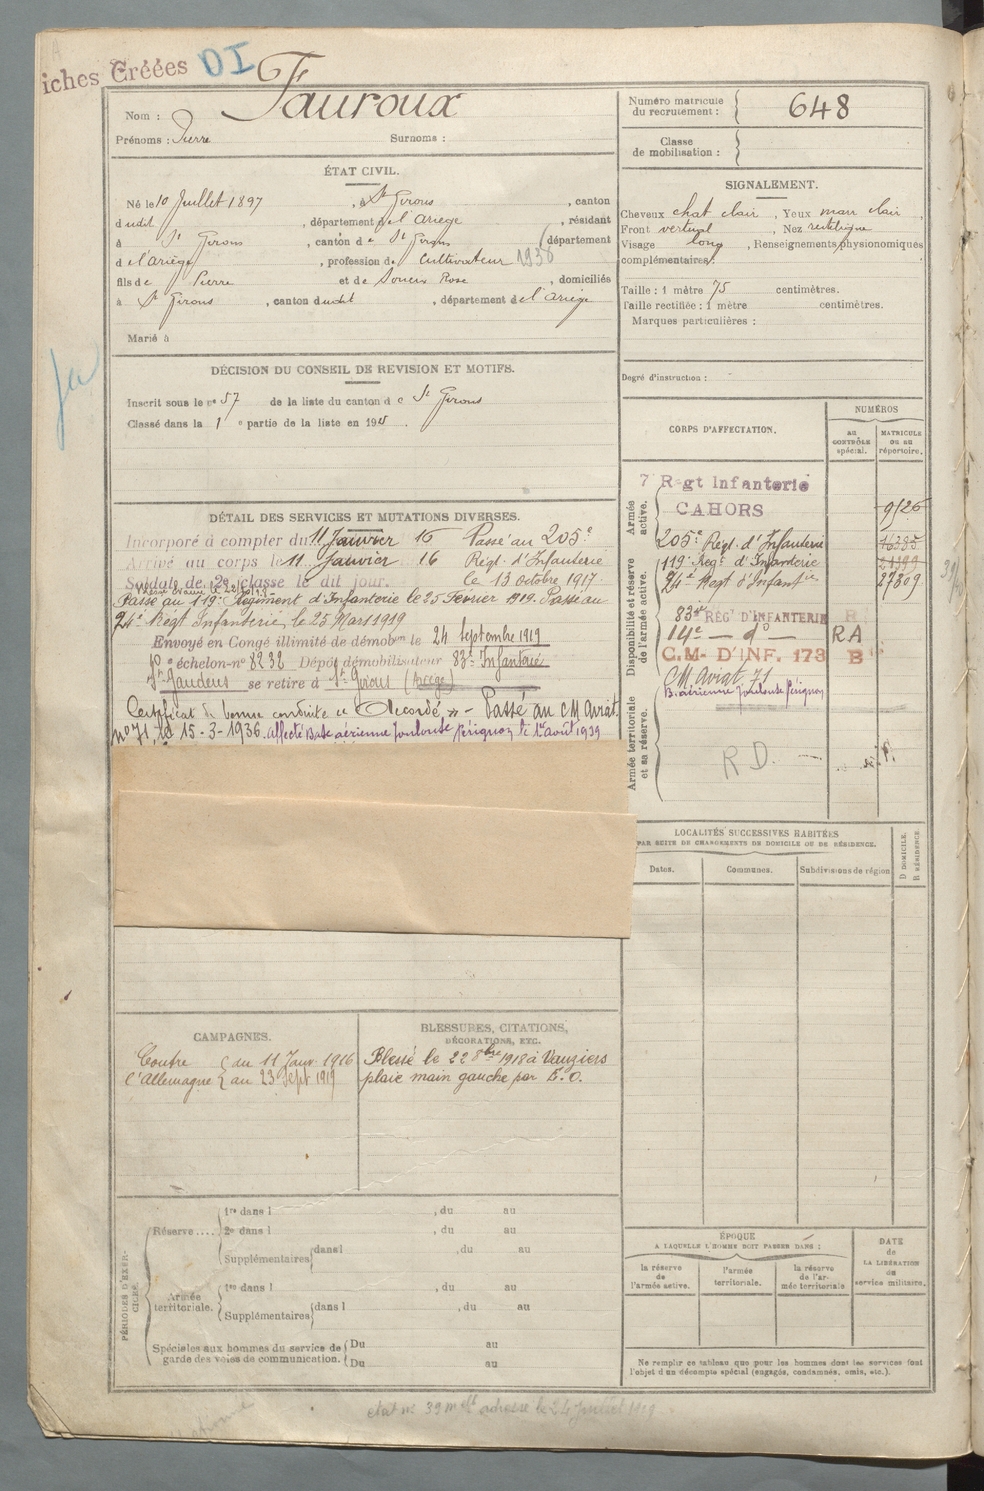 iches Créées DI
Nom : Fauroux
Prénoms : Pierre Surnoms :
Numéro matricule du recrutement : 648
Classe de mobilisation :
ÉTAT CIVIL.
Né le 10 Juillet 1897, à St Girons, canton
dudit, département de l'Ariège, résidant
à St Girons, canton de St Girons (département
de l'ariège, profession de Cultivateur 1936
fils de Pierre et de Soueix Rose, domiciliés
à St Girons, canton dudit, département de l'Ariège
Marié à
SIGNALEMENT.
Cheveux chat clair, Yeux marr clair,
Front vertical, Nez rectiligne
Visage long, Renseignements physionomiques
complémentaires :
Taille : 1 mètre 75 centimètres.
Taille rectifiée : 1 mètre centimètres.
Marques particulières :
Degré d'instruction :
DÉCISION DU CONSEIL DE REVISION ET MOTIFS.
Inscrit sous le n° 57 de la liste du canton de St Girons
Classé dans la 1e partie de la liste en 191
DÉTAIL DES SERVICES ET MUTATIONS DIVERSES.
Incorporé à compter du 11 Janvier 16 Passé au 205e
Arrivé au corps le 11 Janvier 16 Régt d'Infanterie
Soldat de 2e classe le dit jour. le 13 octobre 1917
Passé au 119e Régiment d'Infanterie le 25 Février 1919. Passé au
24e Régt Infanterie, le 25 Mars 1919
Envoyé en Congé illimité de démobon le 24 Septembre 1919
échelon-n° 8232 Dépôt démobilisateur 83e Infanterie
St Gaudens se retire à St Girons (Ariège)
Certificat de bonne conduite « Accordé » - Passé au CM Aviat.
n° 71, le 15-3-1936. affecté Base aérienne Toulouse Pérignon le 1er août 1939
CORPS D'AFFECTATION.
NUMÉROS
AU CONTRÔLE spécial.
MATRICULE ou au répertoire.
Armée active.
7 Regt Infanterie
CAHORS 9126
Disponibilité et réserve de l'armée active.
205e Régt. d'Infanterie 16385
119e Regt d'Infanterie 21399
24e Regt d'Infanterie 27809
83e RÉGt D'INFANTERIE R
14e — do — RA
C.M. D'INF. 173 B
Armée territoriale et sa réserve.
CM Aviat. 71
B. aérienne Toulouse Pérignon
R D.
LOCALITÉS SUCCESSIVES HABITÉES
PAR SUITE DE CHANGEMENTS DE DOMICILE OU DE RÉSIDENCE.
Dates. Communes. Subdivisions de région
D DOMICILE. R RÉSIDENCE
CAMPAGNES.
Contre { du 11 Janv. 1916
l'Allemagne { au 23 Sept 1919
BLESSURES, CITATIONS,
DÉCORATIONS, ETC.
Blessé le 22 8bre 1918 à Vouziers
plaie main gauche par E.O.
PÉRIODES D'EXERCICES.
Réserve.... 1re dans l , du au
2e dans l , du au
Supplémentaires dans l , du au
Armée territoriale. 1re dans l , du au
Supplémentaires dans l , du au
Spéciales aux hommes du service de garde des voies de communication. Du au
Du au
ÉPOQUE
A LAQUELLE L'HOMME DOIT PASSER DANS :
la réserve de l'armée active.
l'armée territoriale.
la réserve de l'armée territoriale
DATE de LA LIBÉRATION du service militaire.
Ne remplir ce tableau que pour les hommes dont les services font
l'objet d'un décompte spécial (engagés, condamnés, omis, etc.).